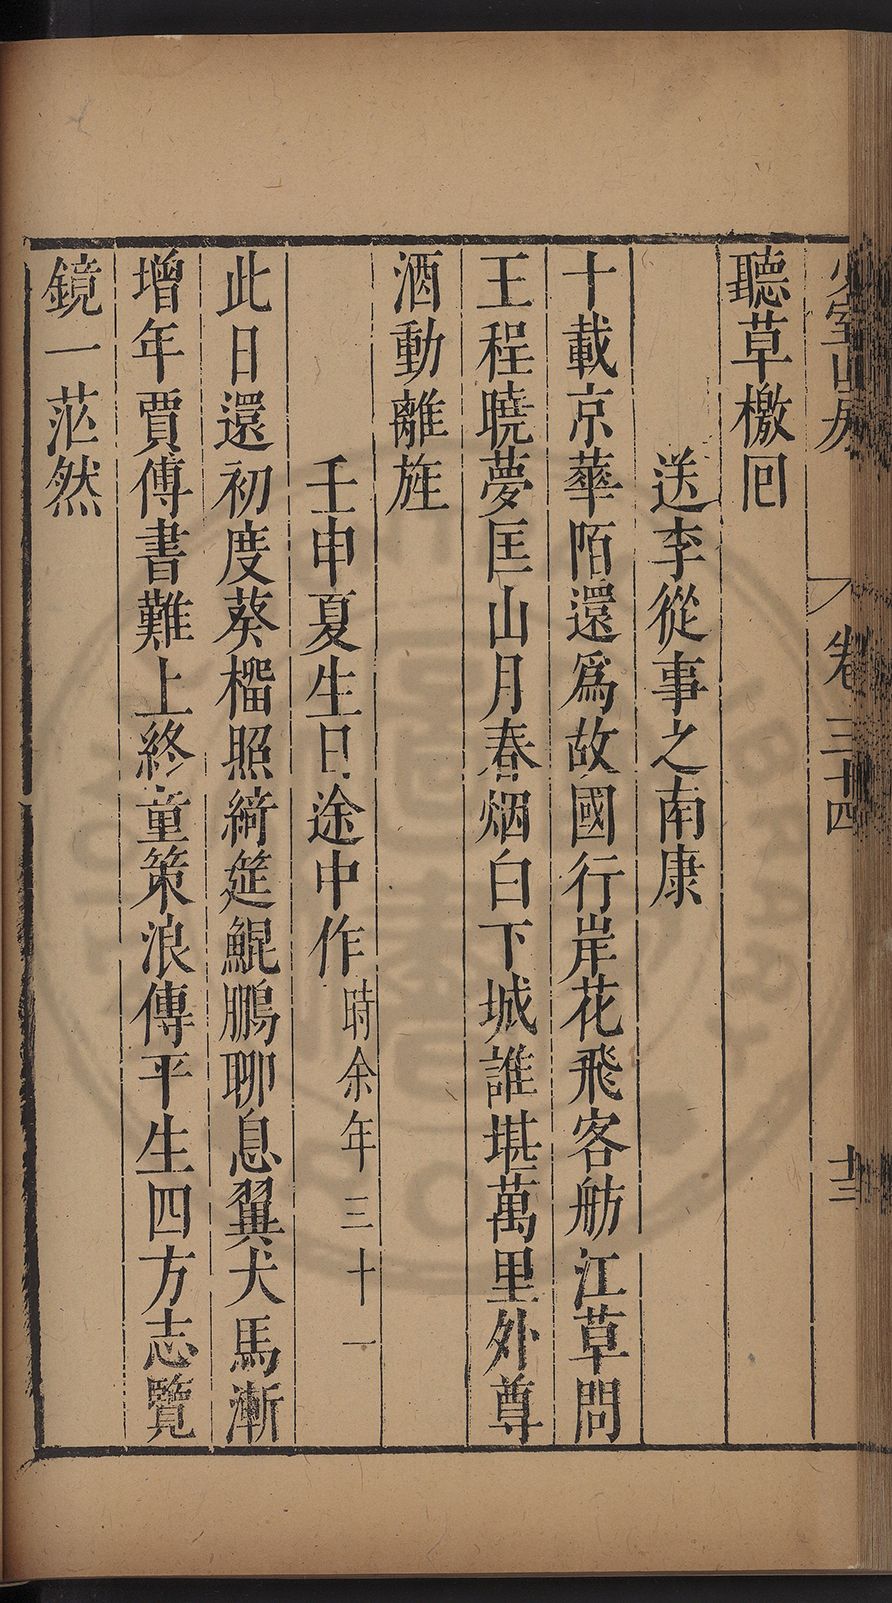 少室山房
卷三十四
十三
聽草檄回
送李從事之南康
十載京華陌還爲故國行岸花飛客舫江草問
王程曉夢匡山月春烟白下城誰堪萬里外尊
酒動離旌
壬申夏生日途中作時余年三十一
此日還初度葵榴照綺筵鯤鵬聊息翼犬馬漸
增年賈傅書難上終童策浪傳平生四方志覽
鏡一茫然